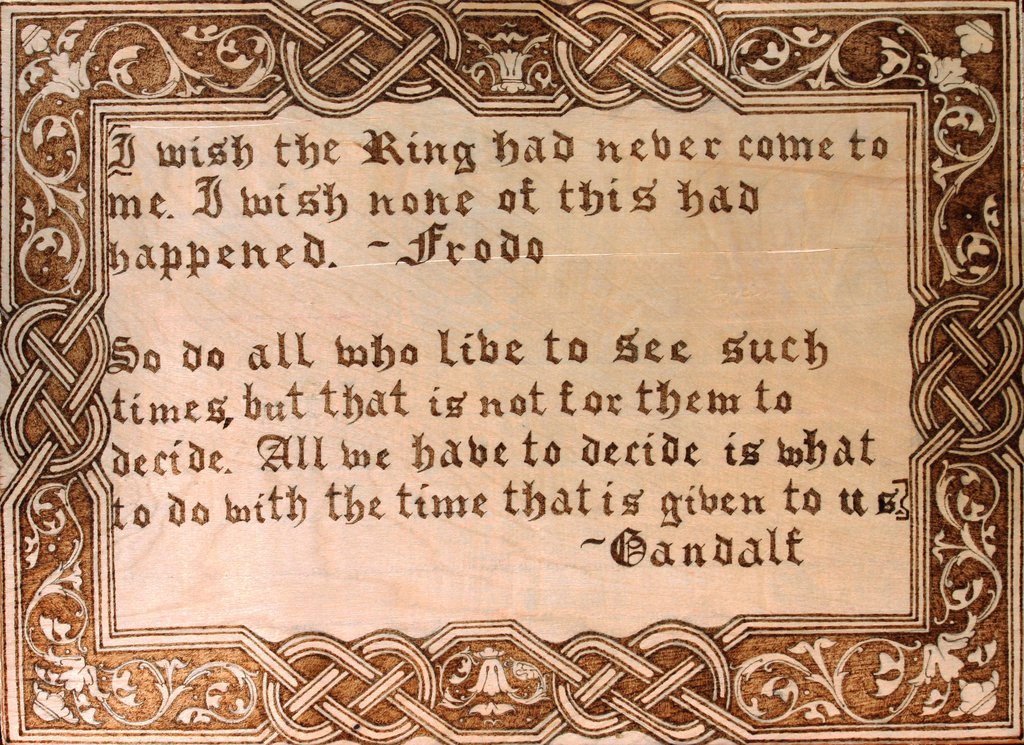 I wish the Ring had never come to
me. I wish none of this had
happened. ~ Frodo
So do all who live to see such
times, but that is not for them to
decide. All we have to decide is what
to do with the time that is given to us.
~Gandalf